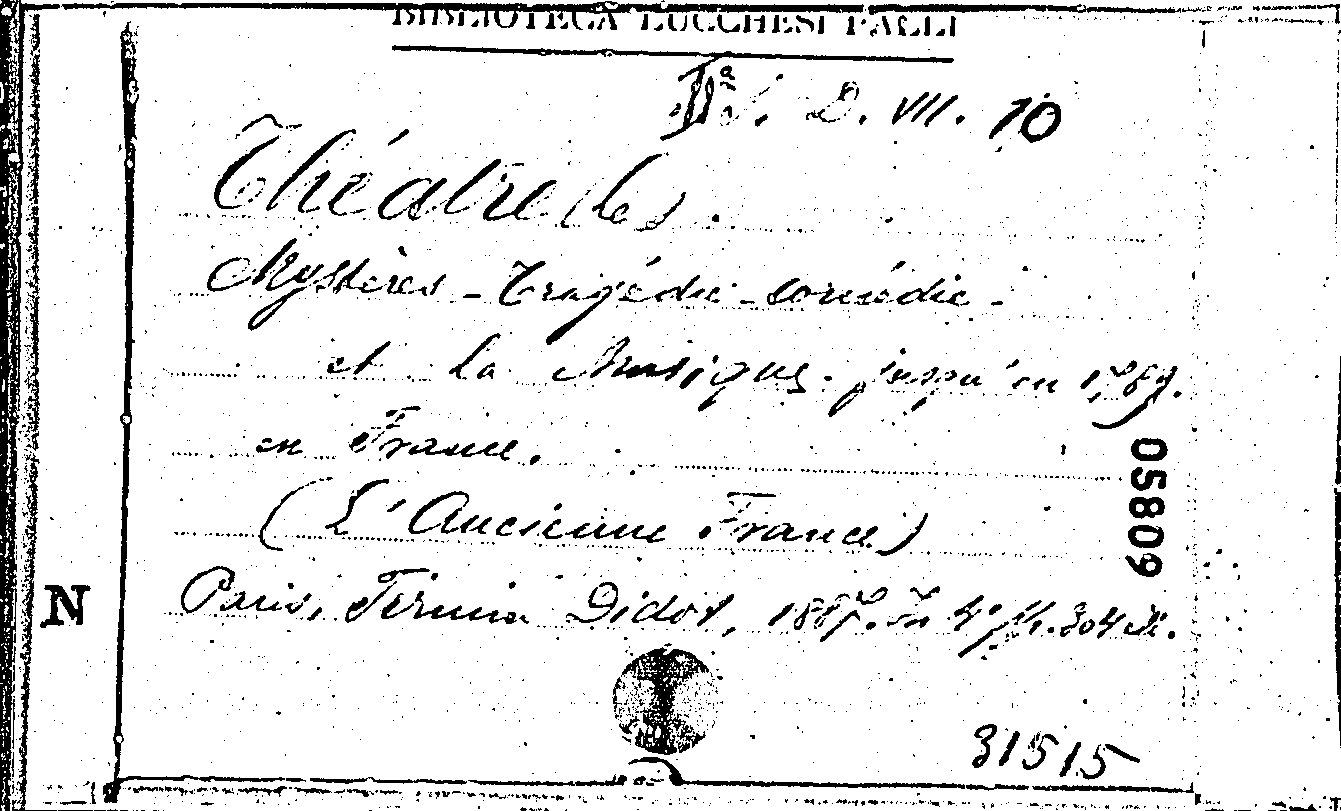 BIBLIOTECA LUCCHESI PALLI
IIª S. D. VII. 10
Théatre (le).
Mystères - Tragédie - comédie -
et la Musique jusqu'en 1789.
en France.
(L'Ancienne France)
05809
N
Paris, Firmin Didot, 1887. In 4° p. 304 ill.
31515